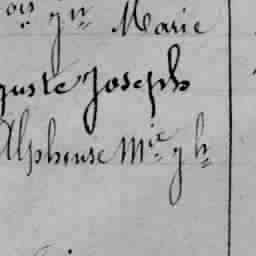 ois jn Marie
guste Joseph
Alphonse Mie jh